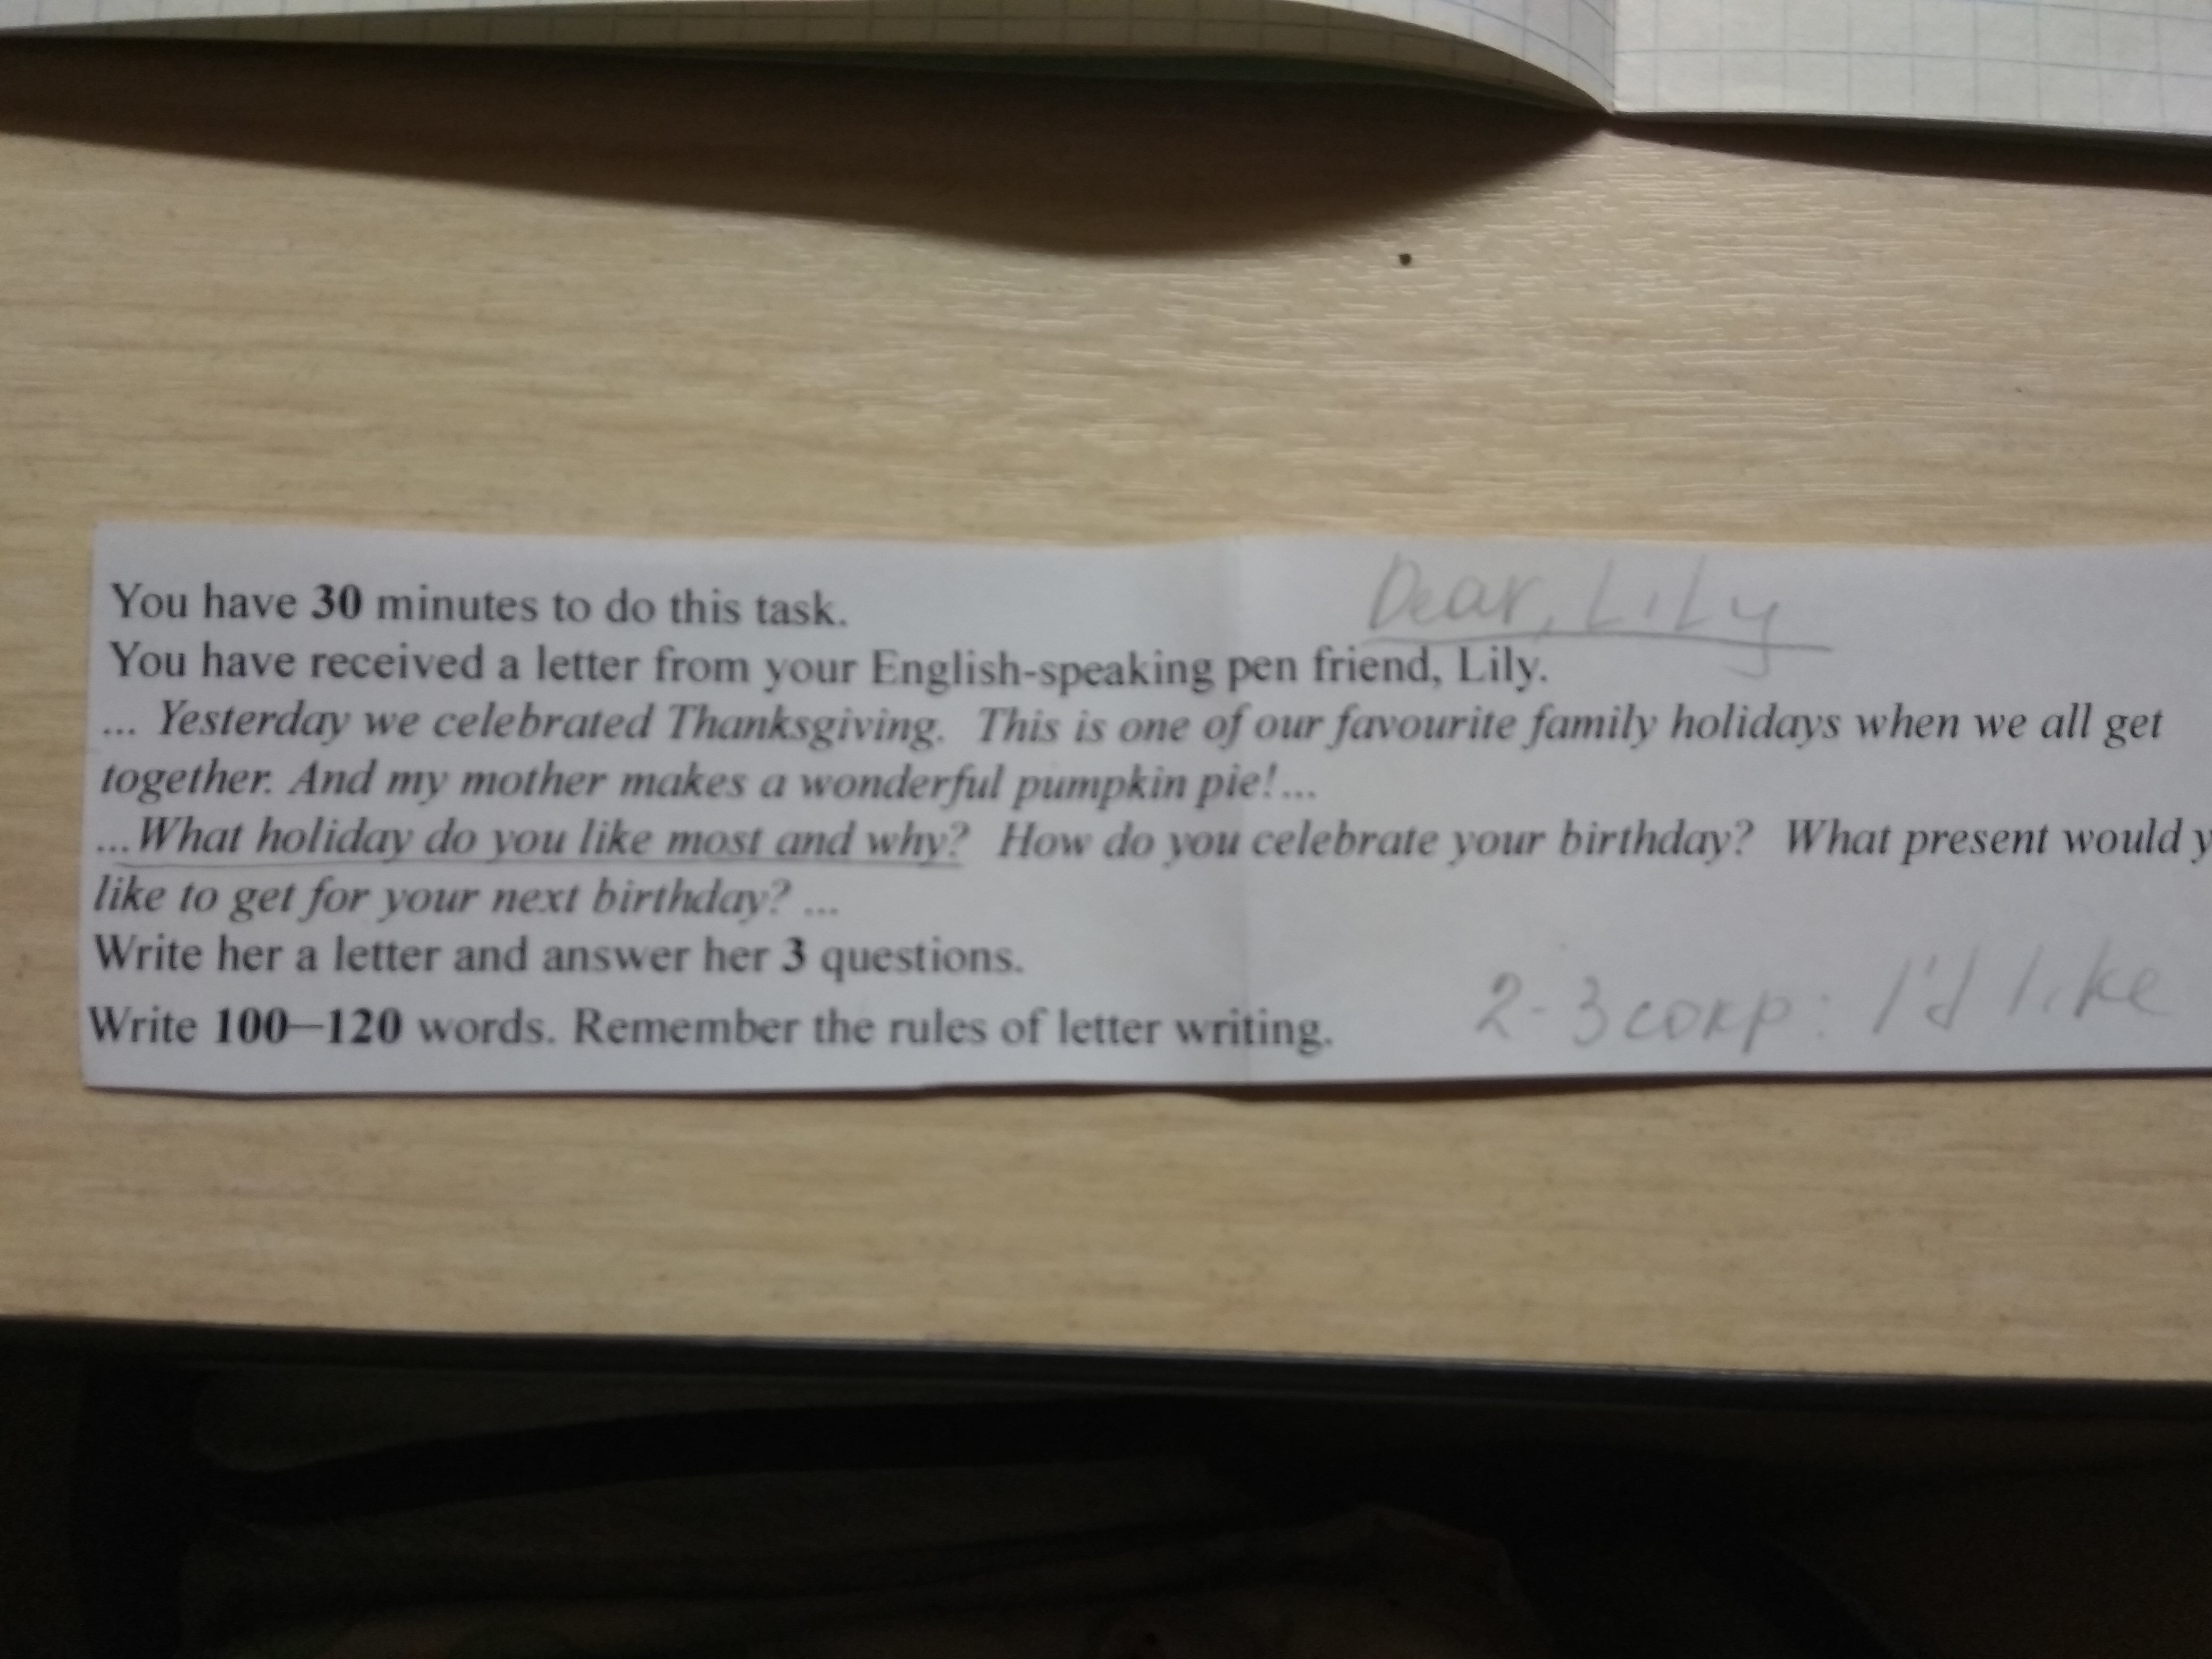 Dear, Lily
You have 30 minutes to do this task.
You have received a letter from your English-speaking pen friend, Lily.
... Yesterday we celebrated Thanksgiving. This is one of our favourite family holidays when we all get
together. And my mother makes a wonderful pumpkin pie!...
...What holiday do you like most and why? How do you celebrate your birthday? What present would y
like to get for your next birthday? ...
Write her a letter and answer her 3 questions.
2-3 сокр: I'd like
Write 100–120 words. Remember the rules of letter writing.